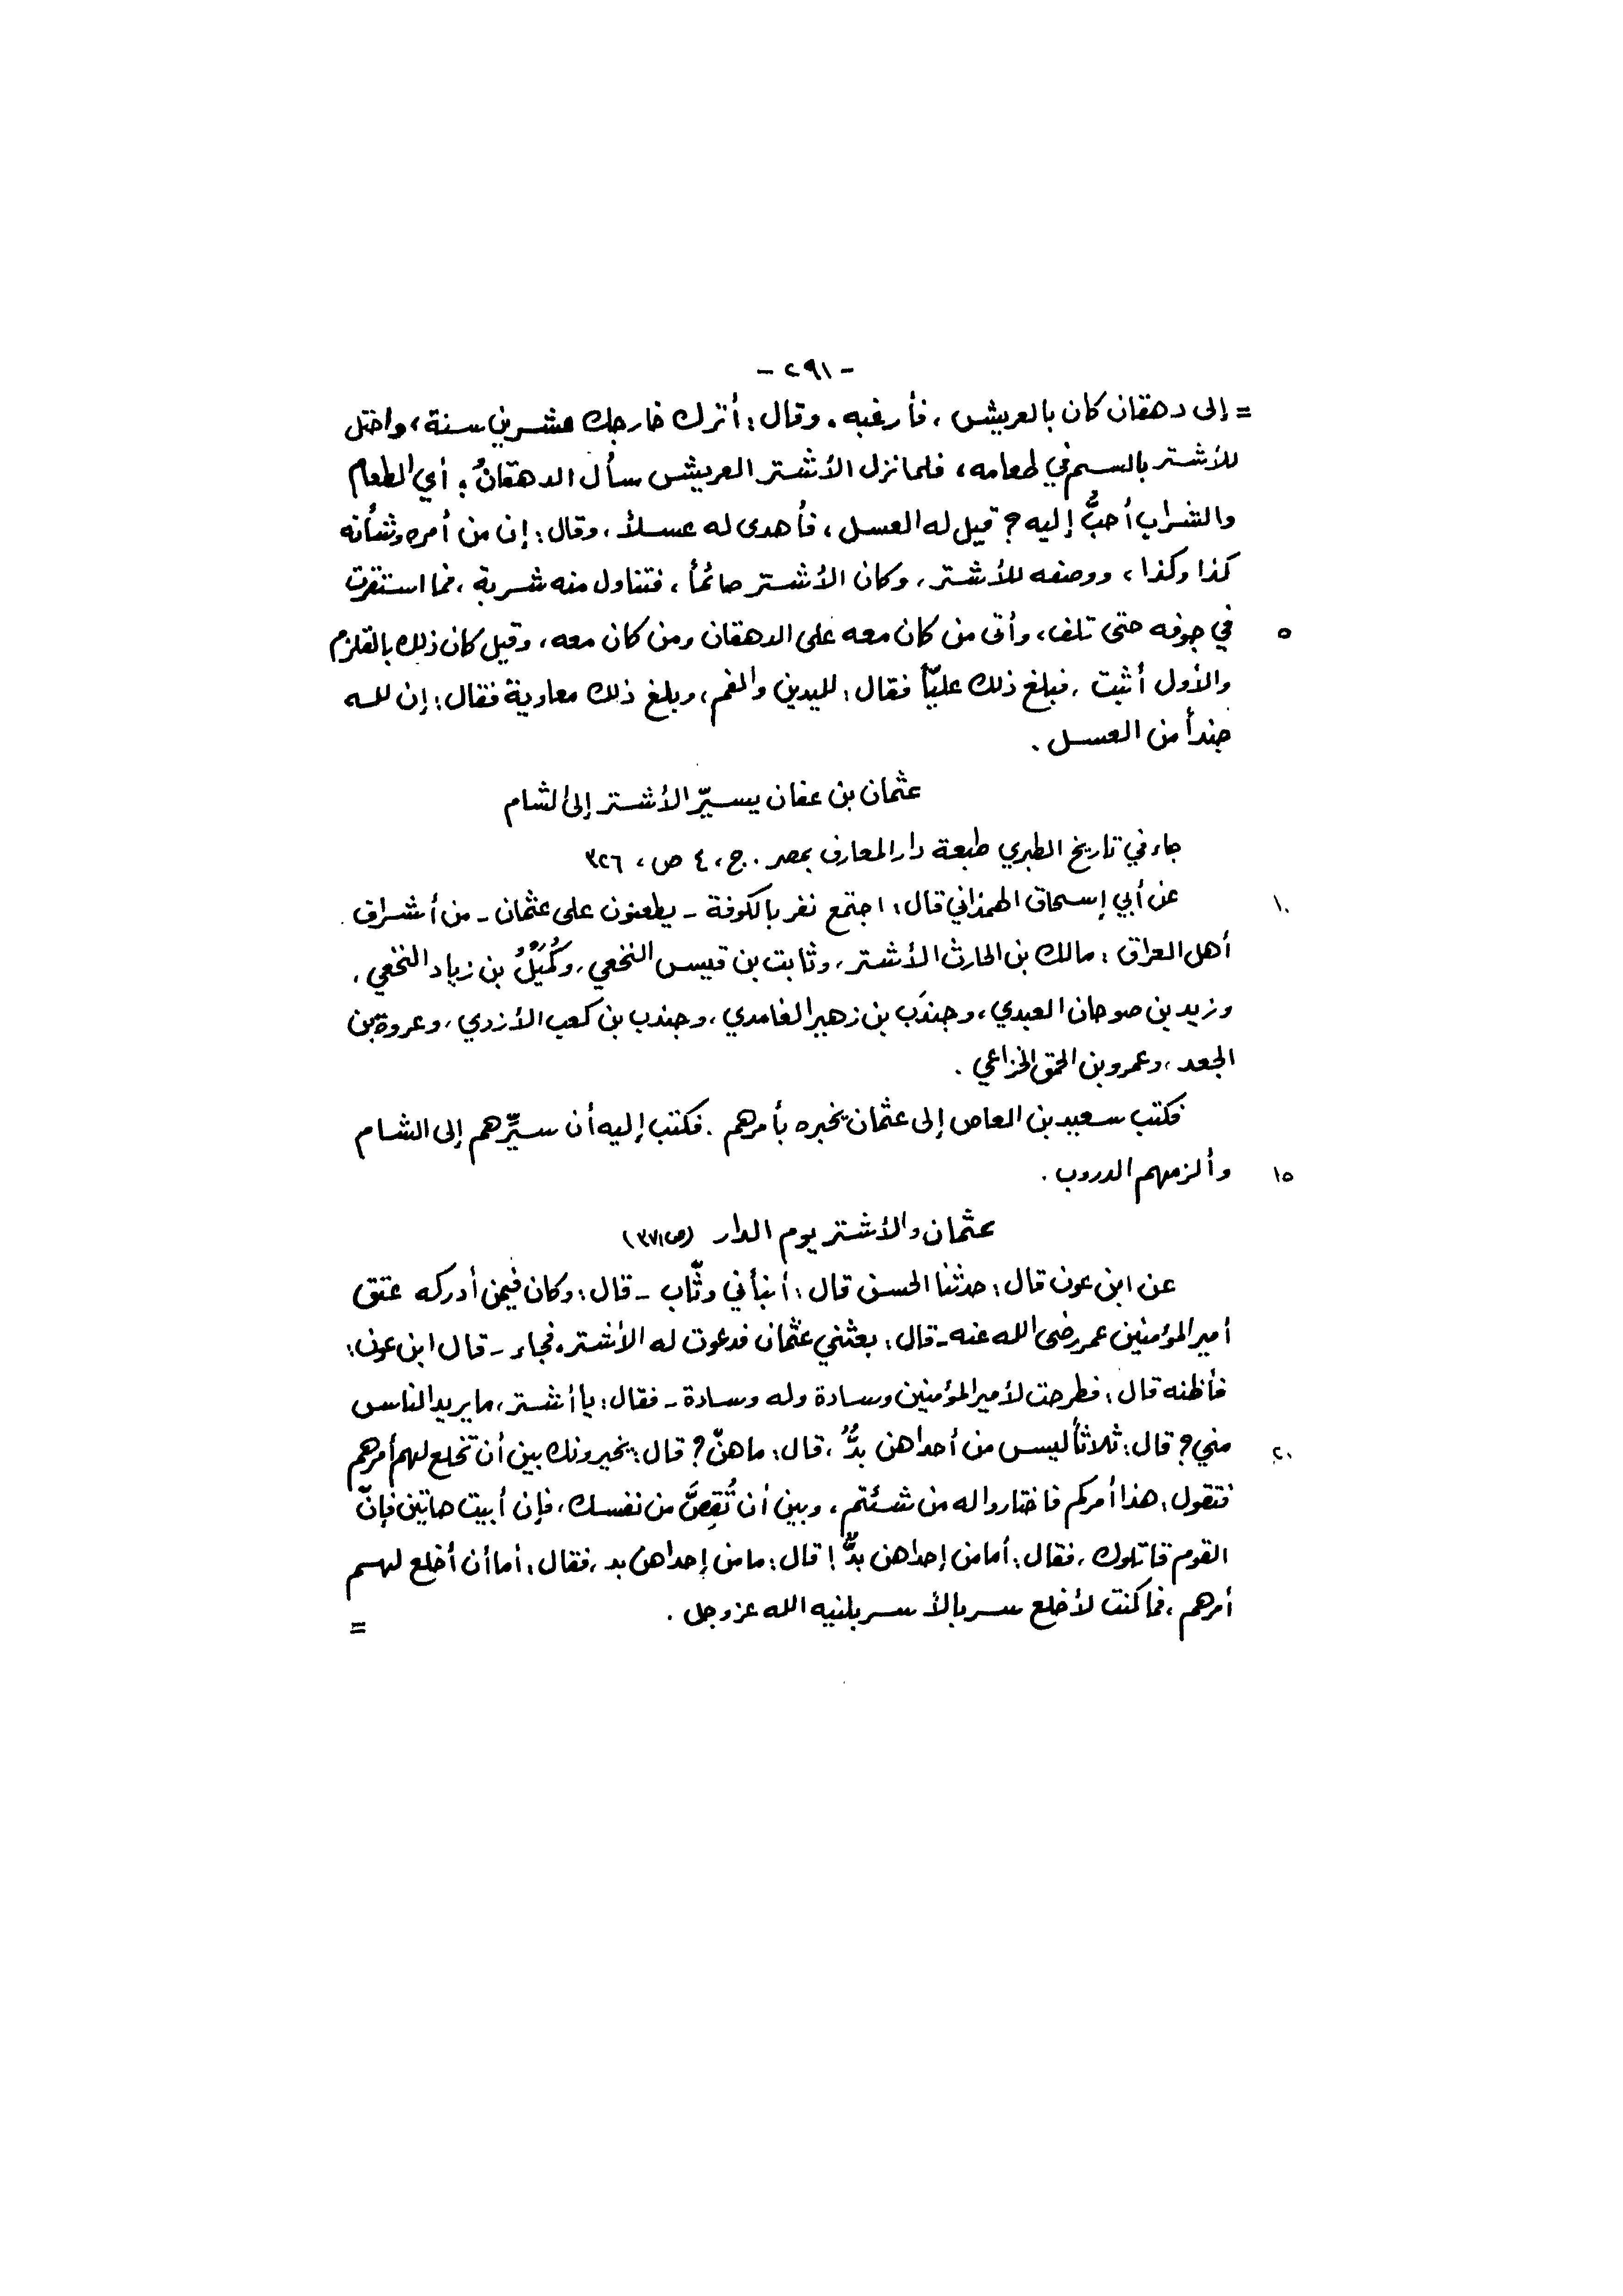 - ٢٩١ -
= إلى دهقان كان بالعريش ، فأرغبه . وقال : أترك خارجك عشرين سنة ، واختل
للأشتر بالسم في طعامه ، فلما نزل الأشتر العريش سأل الدهقانُ : أي الطعام
والشراب أحبُّ إليه ؟ قيل له العسل ، فأهدى له عسلاً ، وقال : إن من أمره وشأنه
كذا وكذا ، ووصفه للأشتر ، وكان الأشتر صائماً ، فتناول منه شربة ، فما استقرت
في جوفه حتى تلف ، وأتى من كان معه على الدهقان ومن كان معه ، وقيل كان ذلك بالقلزم
٥
والأول أثبت ، فبلغ ذلك عليّاً فقال : لليدين والفم ، وبلغ ذلك معاوية فقال : إن لله
جنداً من العسل .
عثمان بن عفان يسيّر الأشتر إلى الشام
جاء في تاريخ الطبري طبعة دار المعارف بمصر . ج ، ٤ ص ، ٣٢٦
عن أبي إسحاق الهمذاني قال : اجتمع نفر بالكوفة - يطعنون على عثمان - من أشراف
١٠
أهل العراق : مالك بن الحارث الأشتر ، وثابت بن قيس النخعي ، وكُمَيْلُ بن زياد النخعي ،
وزيد بن صوحان العبدي ، وجندَب بن زهير الغامدي ، وجندب بن كعب الأزدي ، وعروة بن
الجعد ، وعمرو بن الحمق الخزاعي .
فكتب سعيد بن العاص إلى عثمان يخبره بأمرهم . فكتب إليه أن سيِّرهم إلى الشام
وألزمهم الدروب .
١٥
عثمان والأشتر يوم الدار (ص٣٧١)
عن ابن عون قال : حدثنا الحسن قال : أنبأني وثّاب - قال : وكان فيمن أدركه عتق
أمير المؤمنين عمر رضى الله عنه - قال : بعثني عثمان فدعوت له الأشتر . فجاء - قال ابن عون :
فأظنه قال : فطرحت لأمير المؤمنين وسادة وله وسادة - فقال : يا أشتر ، ما يريد الناس
مني ؟ قال : ثلاثاً ليس من أحداهن بدُّ ، قال : ما هنّ ؟ قال : يخيرونك بين أن تخلع لهم أمرهم
٢٠
فتقول : هذا أمركم فاختاروا له من شئتم ، وبين أن تُقِصَّ من نفسك ، فإن أبيت هاتين فإنّ
القوم قاتلوك ، فقال : أما من إحداهن بدٌّ ! قال : ما من إحداهن بد ، فقال : أما أن أخلع لهم
أمرهم ، فما كنت لأخلع سربالاً سربلنيه الله عز وجل .
=